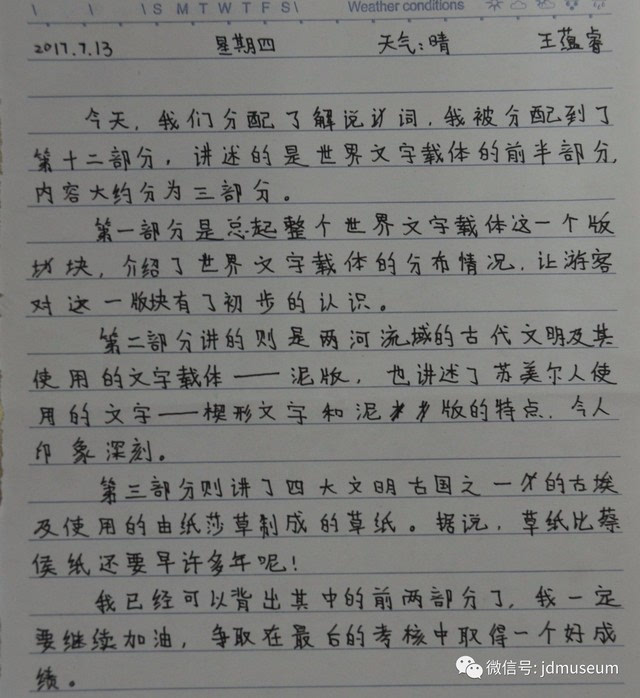 S M T W T F S Weather conditions
2017.7.13 星期四 天气:晴 王蕴睿
今天,我们分配了解说词,我被分配到了
第十二部分,讲述的是世界文字载体的前半部分,
内容大约分为三部分。
第一部分是总起整个世界文字载体这一个版
块,介绍了世界文字载体的分布情况,让游客
对这一版块有了初步的认识。
第二部分讲的则是两河流域的古代文明及其
使用的文字载体——泥版,也讲述了苏美尔人使
用的文字——楔形文字和泥版的特点,令人
印象深刻。
第三部分则讲了四大文明古国之一的古埃
及使用的由纸莎草制成的草纸。据说,草纸比蔡
侯纸还要早许多年呢!
我已经可以背出其中的前两部分了,我一定
要继续加油,争取在最后的考核中取得一个好成
绩。
微信号: jdmuseum